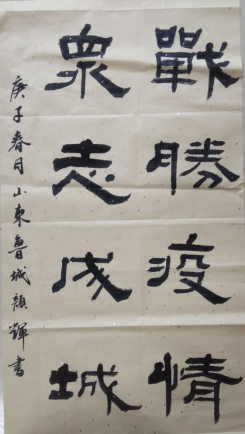 戰勝疫情
眾志成城
庚子春月山東魯城顏輝書